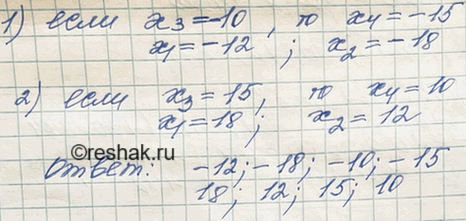 1) если x₃ = -10, то x₄ = -15
x₁ = -12 ; x₂ = -18
2) если x₃ = 15, то x₄ = 10
x₁ = 18 ; x₂ = 12
©reshak.ru
Ответ: -12; -18; -10; -15
18; 12; 15; 10